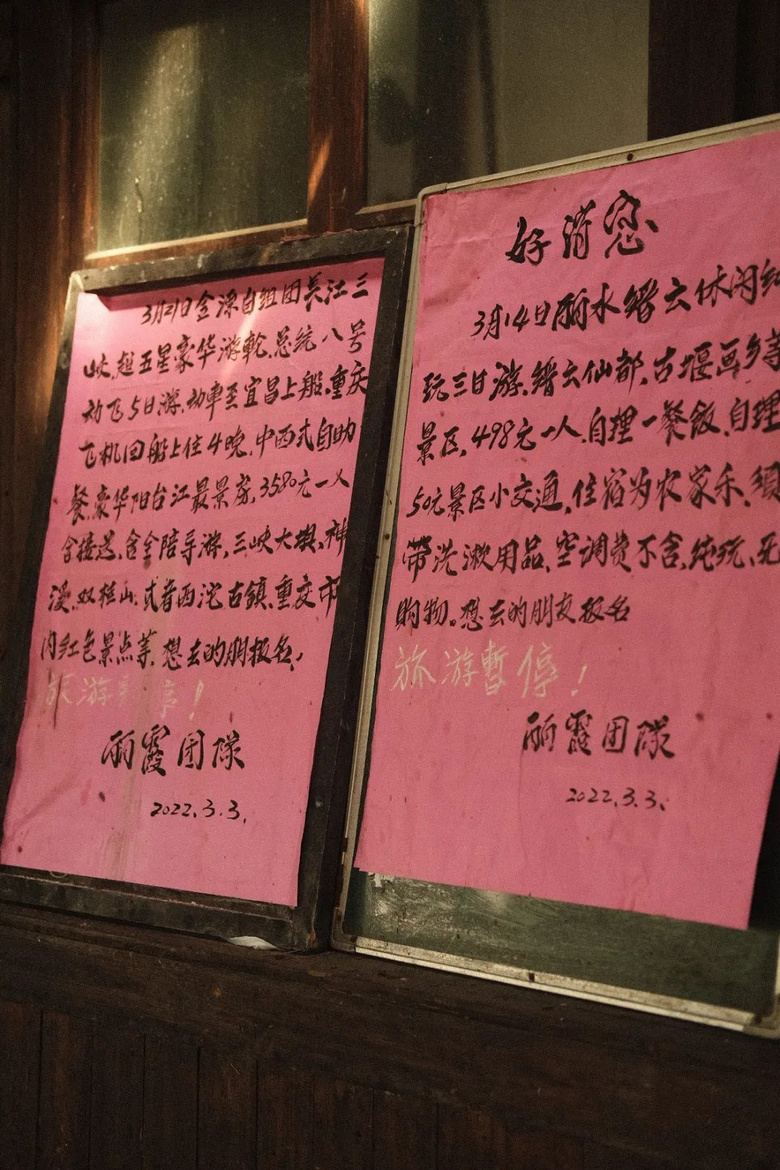 3月21日全源自组团长江三
峡.超五星豪华游轮.总统八号
动飞5日游.动車至宜昌上船.重庆
飞机回船上住4晚.中西式自助
餐.豪华阳台江景房.3580元一人
含接送.含全陪导游.三峡大壩.神
溪.双桂山.或者西沱古鎮.重庆市
内红色景点等.想去的朋报名.
旅游暫停！
丽霞团隊
2022.3.3.
好消息
3月14日丽水缙云休闲
玩三日游.缙云仙都.古堰画乡等
景区.498元一人.自理一餐飯.自理
50元景区小交通.住宿为农家乐.須
带洗漱用品.空调费不含.纯玩.无
购物。想去的朋友报名
旅游暫停！
丽霞团隊
2022.3.3.